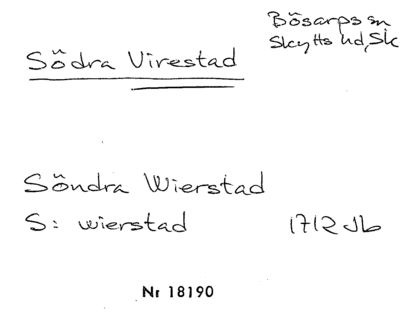 Bösarps sn
Skytts hd, Sk
Södra Virestad
Söndra Wierstad
S: wierstad 1712 Jb
Nr 18190